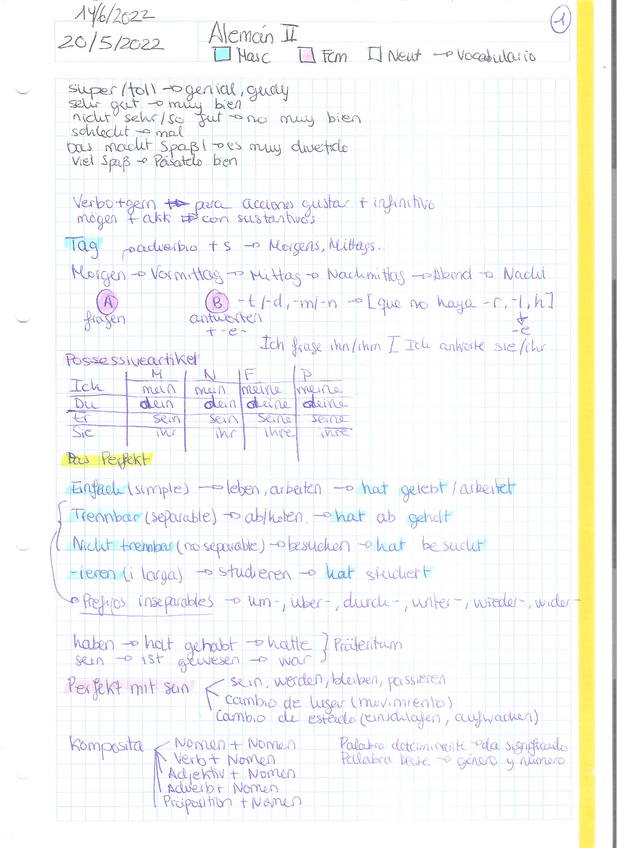 14/6/2022
20/5/2022
1
Alemán II
Masc Fem Neut → Vocabulario
super/toll → genial, guay
sehr gut → muy bien
nicht sehr/so gut → no muy bien
schlecht → mal
Das macht Spaß! → es muy divertido
Viel Spaß → Pásatelo bien
Verbo+gern → para acciones gustar + infinitivo
mögen + akk → con sustantivos
Tag adverbio + s → Morgens, Mittags.
Morgen → Vormittag → Mittag → Nachmittag → Abend → Nacht
A B -t/-d, -m/-n → [que no haya -r, -l, h]
fragen antworten -e
+ -e-
Ich frage ihn/ihm I Ich antworte sie/ihr
Possessiveartikel
M N F P
Ich mein mein meine meine
Du dein dein deine deine
Er sein sein seine seine
Sie ihr ihr ihre ihre
Das Perfekt
Einfach (simple) → leben, arbeiten → hat gelebt/arbeitet
Trennbar (separable) → ab/holen → hat ab geholt
Nicht trennbar (no separable) → besuchen → hat besucht
-ieren (i larga) → studieren → hat studiert
Prefijos inseparables → um-, über-, durch-, unter-, wieder-, wider-
haben → hat gehabt → hatte } Präteritum
sein → ist gewesen → war
Perfekt mit sein sein, werden, bleiben, passieren
Cambio de lugar (movimiento)
Cambio de estado (einschlafen, aufwachen)
Komposita Nomen + Nomen Palabra determinante → da significado
Verb + Nomen Palabra base → género y número
Adjektiv + Nomen
Adverb + Nomen
Präposition + Nomen